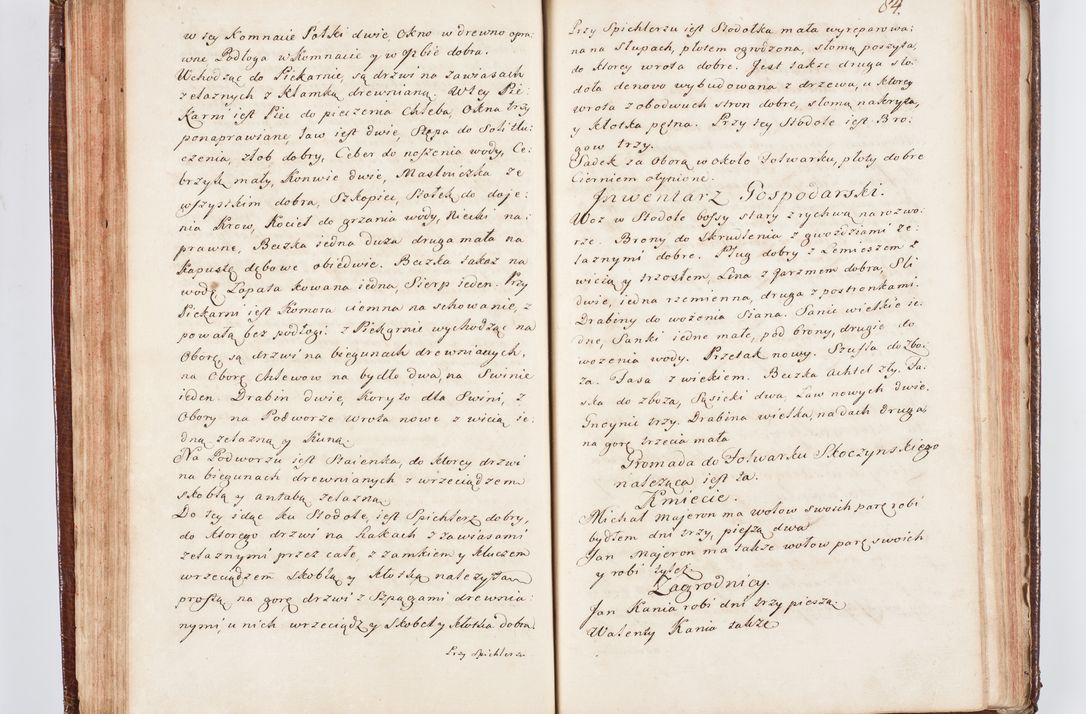 w tey Komnacie Połki dwie, Okno w drewno opra-
wne Podłoga w Komnacie y w Izbie dobra.
Wchodząc do Piekarnie, są drzwi na zawiasach
zelaznych z klamką drewnianą. W tey Pie-
karni iest Piec do pieczenia Chleba, Okna trzy
ponaprawiane, ław iest dwie, Stępa do Soli tłu-
czenia, złob dobry, Ceber do noszenia wody, Ce-
brzyk mały, Konwie dwie, Masłniczka ze
wszystkim dobra, Szkopiec, Stołek do doje-
nia Krow, Kocieł do grzania wody, Niecki na-
prawne, Beczka iedna duza druga mała na
Kapustę dębowe obiedwie. Beczka takaz na
wodę Łopata kowana iedna, Sierp ieden. Przy
Piekarni iest Komora ciemna na schowanie, z
powałą bez podłogi. z Piekarnie wychodząc na
Oborę są drzwi na biegunach drewnianych,
na Oborę Chlewow na bydło dwa, na Swinie
ieden. Drabin dwie, Koryto dla Swini, z
Obory na Podworze wrota nowe z wicią ie-
dną zelazną y Kuną.
Na Podworzu iest Staienka, do ktorey drzwi
na biegunach drewnianych z wrzeciądzem
skoblą y antabą zelazną
Do tey idąc ku Stodole, iest Spichlerz dobry,
do ktorego drzwi na Kakach z zawiasami
zelaznymi przez całe, z zamkiem y kluczem
wrzeciądzem skoblą y kłotką nalezytą
prostą na gorę drzwi z Szpagami drewnia-
nymi, u nich wrzeciądz y skobel y kłotka dobra
Przy Spichlerzu
84.
Przy Spichlerzu iest Stodołka mała wyreparowa-
na na słupach, płotem ogrodzona, słomą poszyta,
do ktorey wrota dobre. Jest także druga sto-
doła denovo wybudowana z drzewa, u ktorey
wrota z obodwuch stron dobre, słomą nakryta,
y kłotka pętna. Przy tey Stodole iest Bro-
gow trzy.
Sadek za Oborą w około Folwarku, płoty dobre
Cierniem otynione.
Inwentarz Gospodarski.
Woz w Stodole bossy stary z rychwą na rozwo-
rze. Brony do Skrudlenia z gwoździami ze-
laznymi dobre. Pług dobry z Lemieszem z
wicią y trzosłem, Lina z Jarzmem dobra, Śli
dwie, iedna rzemienna, druga z postronkami.
Drabiny do wożenia Siana. Sanie wielkie ie-
dne, Sanki iedne małe, pod brony, drugie do
wozenia wody. Przetak nowy. Szufla do zbo-
za. Fasa z wiekiem. Beczka achtel zły. Fa-
ska do zboża, Sąsieki dwa, Ław nowych dwie.
Gnoynic trzy. Drabina wielka, na dach druga
na gorę trzecia mała
Gromada do Folwarku Skoczynskiego
naleząca iest ta.
Kmiecie.
Michał Majeron ma wołow swoich parę robi
bydłem dni trzy, pieszą dwa
Jan Majeron ma takze wołow parę swoich
y robi tylez.
Zagrodnicy.
Jan Kania robi dni trzy pieszą.
Walenty Kania takze